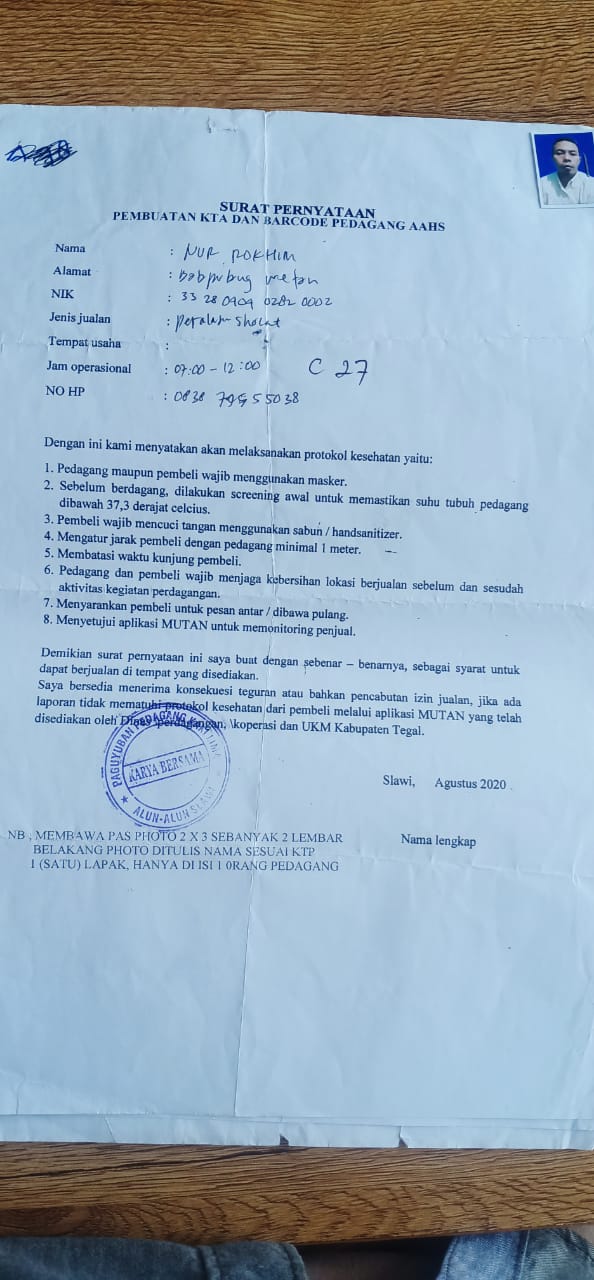 SURAT PERNYATAAN
PEMBUATAN KTA DAN BARCODE PEDAGANG AAHS
Nama : NUR ROKHIM
Alamat : wetan
NIK : 33 28 0909 0282 0002
Jenis jualan : Peralatan Sholat
Tempat usaha :
Jam operasional : 07:00 - 12:00 C 27
NO HP : 0838
Dengan ini kami menyatakan akan melaksanakan protokol kesehatan yaitu:
1. Pedagang maupun pembeli wajib menggunakan masker.
2. Sebelum berdagang, dilakukan screening awal untuk memastikan suhu tubuh pedagang
dibawah 37,3 derajat celcius.
3. Pembeli wajib mencuci tangan menggunakan sabun / handsanitizer.
4. Mengatur jarak pembeli dengan pedagang minimal 1 meter.
5. Membatasi waktu kunjung pembeli.
6. Pedagang dan pembeli wajib menjaga kebersihan lokasi berjualan sebelum dan sesudah
aktivitas kegiatan perdagangan.
7. Menyarankan pembeli untuk pesan antar / dibawa pulang.
8. Menyetujui aplikasi MUTAN untuk memonitoring penjual.
Demikian surat pernyataan ini saya buat dengan sebenar – benarnya, sebagai syarat untuk
dapat berjualan di tempat yang disediakan.
Saya bersedia menerima konsekuesi teguran atau bahkan pencabutan izin jualan, jika ada
laporan tidak mematuhi protokol kesehatan dari pembeli melalui aplikasi MUTAN yang telah
disediakan oleh Dinas perdagangan, \koperasi dan UKM Kabupaten Tegal.
PAGUYUBAN PEDAGANG KAKI LIMA
KARYA BERSAMA
ALUN-ALUN SLAWI
Slawi, Agustus 2020
Nama lengkap
NB , MEMBAWA PAS PHOTO 2 X 3 SEBANYAK 2 LEMBAR
BELAKANG PHOTO DITULIS NAMA SESUAI KTP
1 (SATU) LAPAK, HANYA DI ISI 1 0RANG PEDAGANG